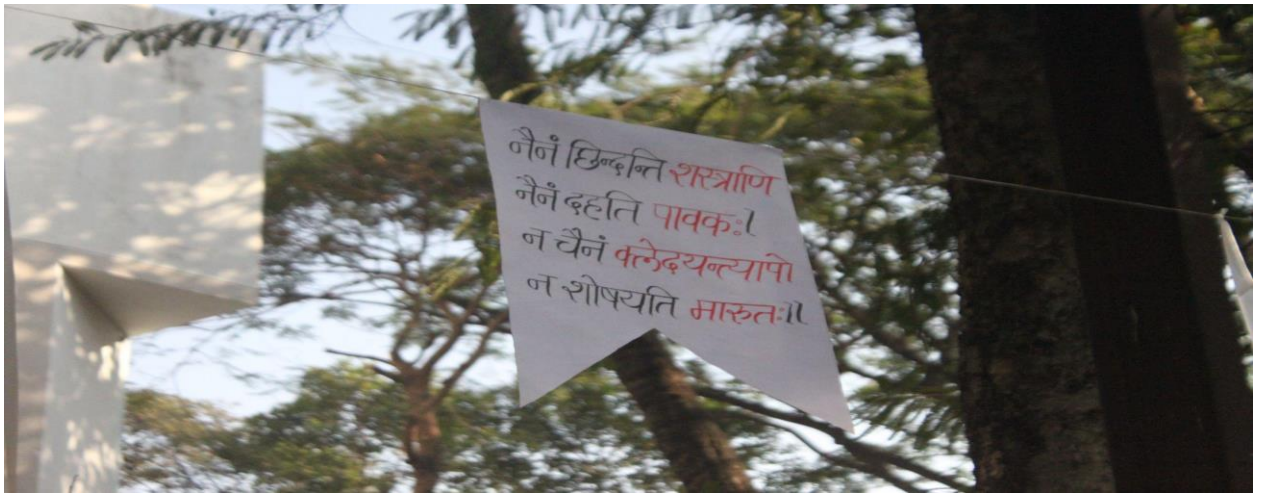 नैनं छिन्दन्ति शस्त्राणि
नैनं दहति पावकः।
न चैनं क्लेदयन्त्यापो
न शोषयति मारुतः॥